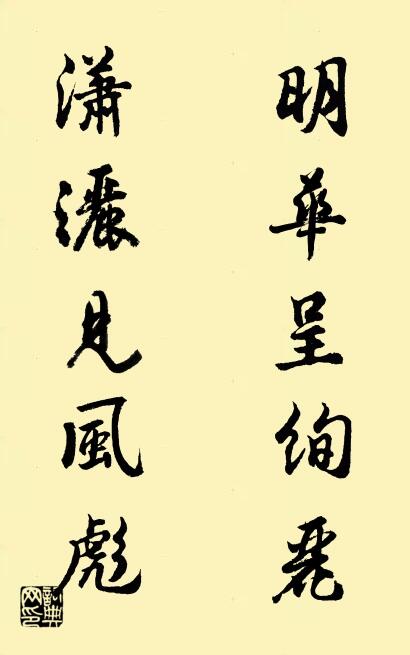 明華呈絢麗
瀟灑見風彪